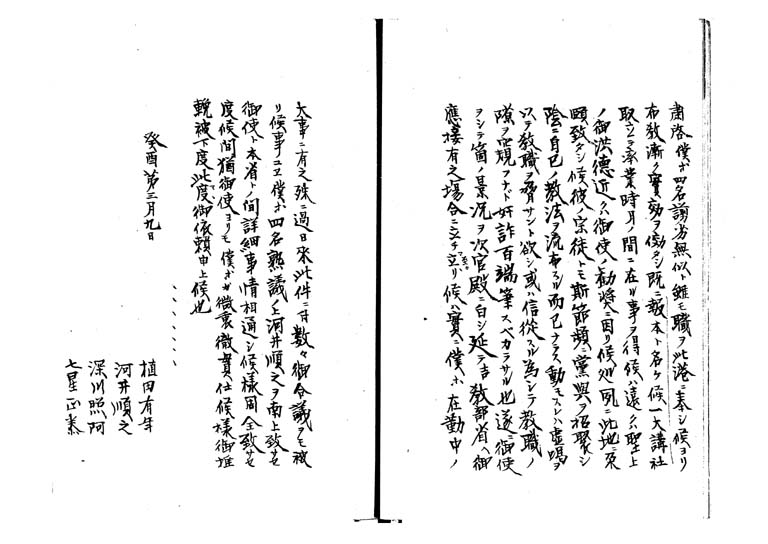 粛啓僕等四名譾劣無似ト雖モ職ヲ此港ニ奉シ候ヨリ
布教漸ク實効ヲ僚シ既ニ報本ト名ケ候一大講社
取立ニ卒業時月ノ間ニ在ル事ヲ得候ハ遠クハ聖上
ノ御洪徳近クハ御使ノ勧奨ニ因リ候処夙ニ此地ニ来
頤致シ候彼ノ宗徒トモ斯節頻ニ黨與ヲ招聚シ
陰ニ自己ノ教法ヲ流布スル而已ナラス動モスレハ虚喝ヲ
以テ教職ヲ脅サント欲シ或ハ信従スル為シテ教職ノ
隙ヲ窺フナド奸詐百端筆スベカラサル也遂ニ御使
ヲシテ箇ノ景况ヲ次官殿ニ白シ延テ教部省ヘ御
應接有之場合ニ立チ立リ候ハ實ニ僕等在勤中ノ
大事ニ有之殊ニ過日來此件ニ付数々御会議ヲモ被
リ候事ユエ僕等四名熟議ノ上河井順之ヲ南上致サセ
御使ト本省トノ間詳細事情相通シ候様周全致サセ
度候間猶御使ヨリモ僕等カ微衷徹貫仕候様御垂
貌被下度此度御依頼申上候也
癸酉第三月九日
植田有年
河井順之
深川照阿
七星正泰